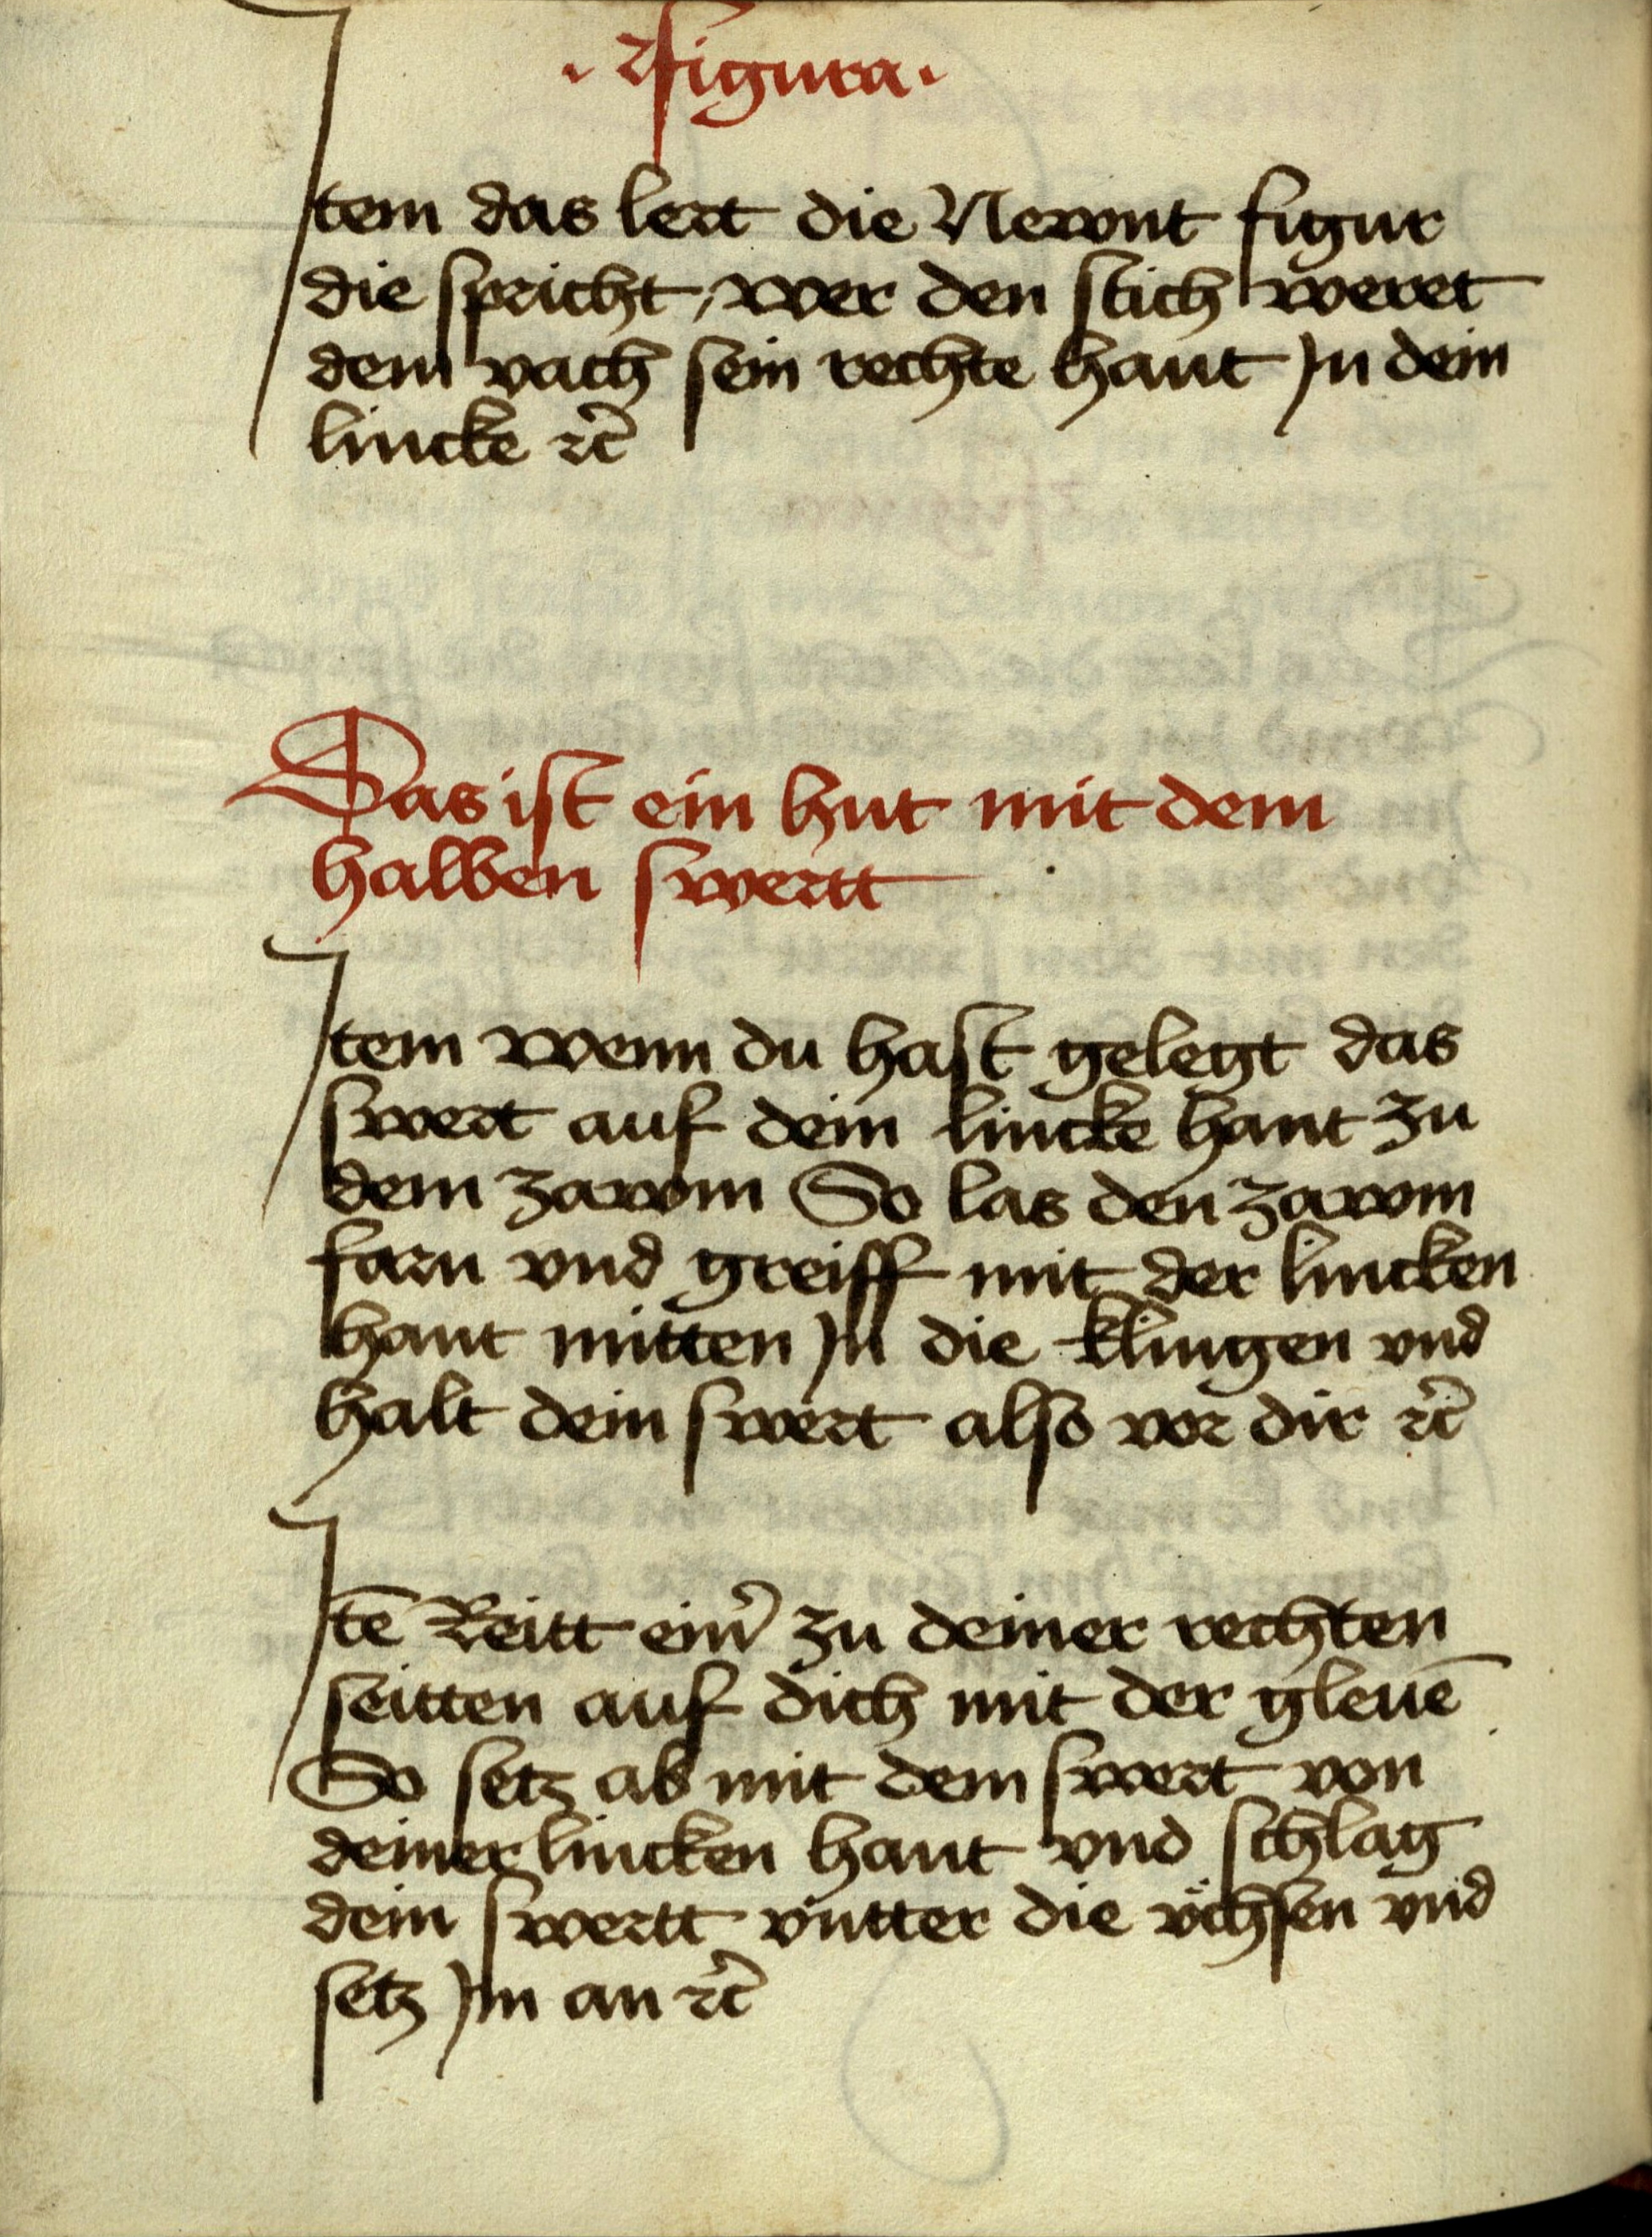 · Figura ·
Item das lert die Newnt figur
die spricht / wer den stich weret
dem vach sein rechte hant Jn dein
lincke ꝛc̃
Das ist ein hut mit dem
halben swertt
Item wenn du hast gelegt das
swert auf dein lincke hant zu
dem zawm So las den zawm
farn vnd greiff mit der lincken
hant mitten Jn die klingen vnd
halt dein swert also vor dir ꝛc̃
Itē Reitt ein̾ zu deiner rechten
seitten auf dich mit der gleuē
So setz ab mit dem swert von
deiner lincken hant vnd schlag
dein swertt vntter die vchsen vnd
setz Jm an ꝛc̃